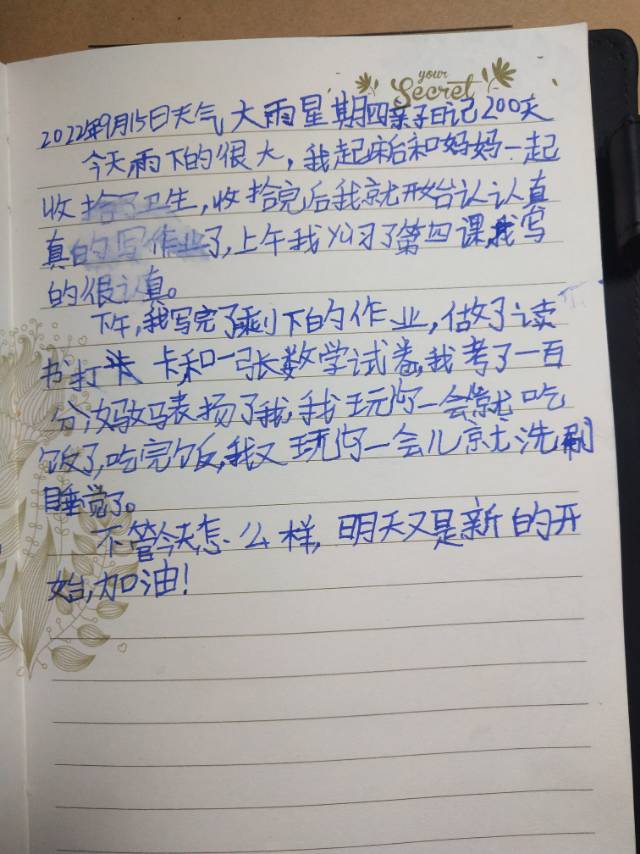 your
Secret
2022年9月15日天气大雨星期四亲子日记200天
今天雨下的很大，我起床后和妈妈一起
收拾了卫生，收拾完后我就开始认认真
真的写作业了，上午我从习了第四课，我写
的很认真。
下午，我写完了剩下的作业，做了读
书打卡和一张数学试卷，我考了一百
分，妈妈表扬了我，我玩了一会就吃
饭了，吃完饭，我又玩了一会儿就洗刷
睡觉了。
不管今天怎么样，明天又是新的开
始，加油！